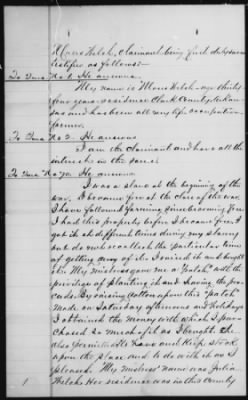 Mose Welch, Claimant being first duly sworn
testifies as follows—
To Inter No 1 He answers
My name is Mose Welch—age thirty
four years—residence Clark County Arkan-
sas and has been all my life, occupation
farmer.
To Inter No 2. He answers
I am the Claimant and have all the
interest in the same.
To Inter No 70. He answers
I was a slave at the beginning of the
war. I became free at the close of the war.
I have followed farming since becoming free
I had this property before I became free. I
got it at different times during my slavery
but do not recollect the particular time
of getting any of it. I raised it and bought
it. My mistress gave me a "patch" with the
privilege of planting it and having the pro-
ceeds. By raising cotton upon this "patch"
made on Saturday afternoons and Holidays
I obtained the money with which I pur-
chased so much of it as I bought. She
also permitted to have and keep stock
upon the place and to do with it as I
pleased. My mistress' name was Julia
Welch. Her residence was in this County
1